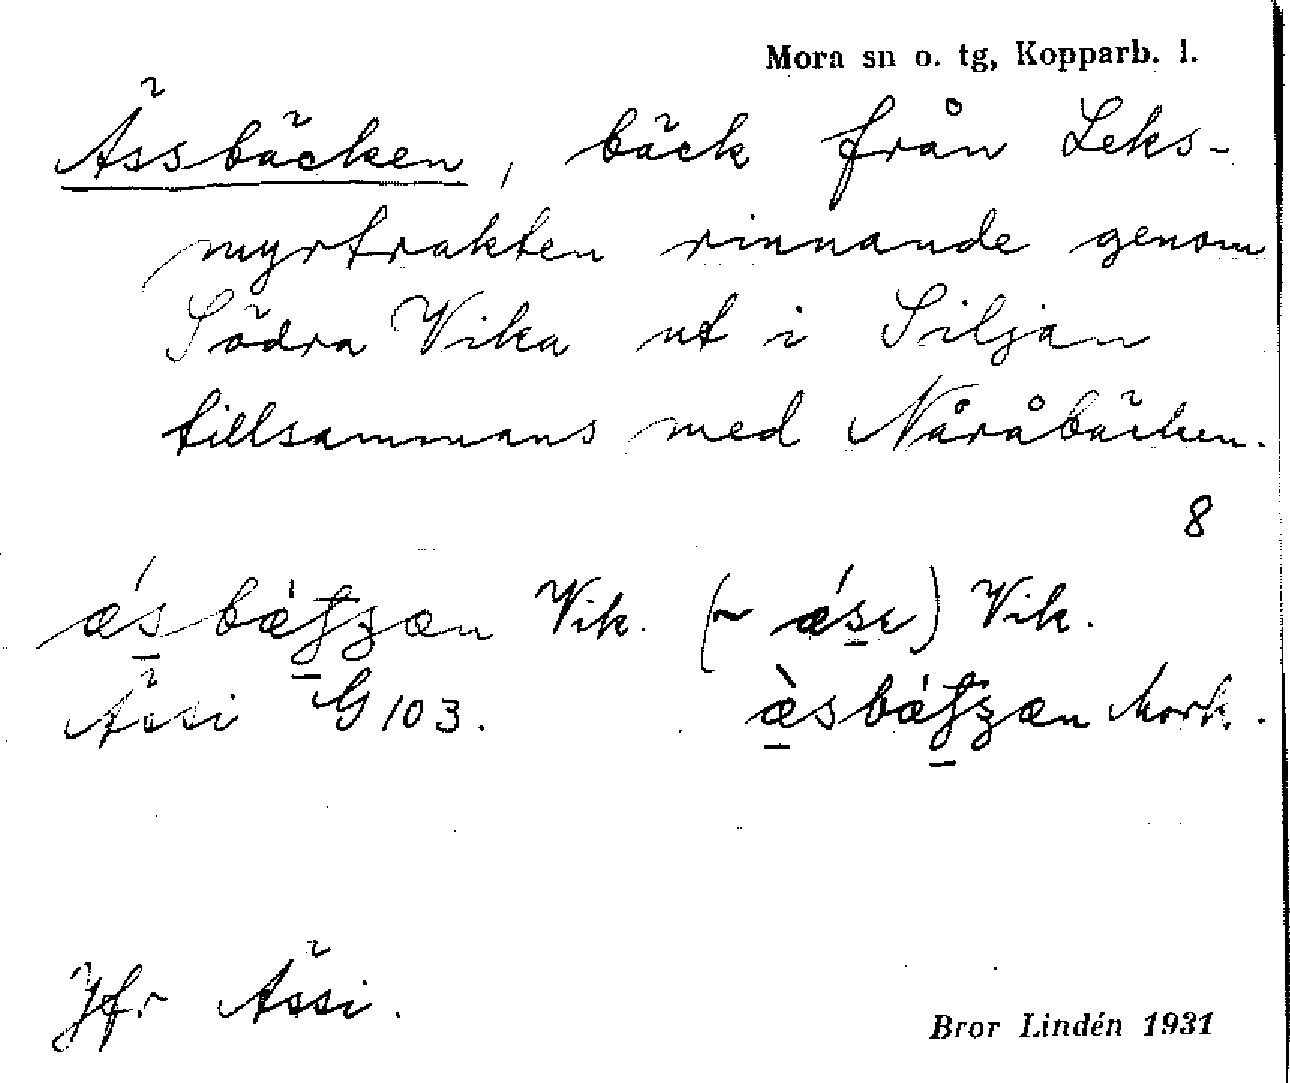 Mora sn o. tg, Kopparb. l.
Ässbäcken, bäck från Leks-
myrtrakten rinnande genom
Södra Vika ut i Siljan
tillsammans med Nåråbäcken.
8
Vik. (~ ) Vik.
Ässi G 103. Mork.
Jfr Ässi.
Bror Lindén 1931